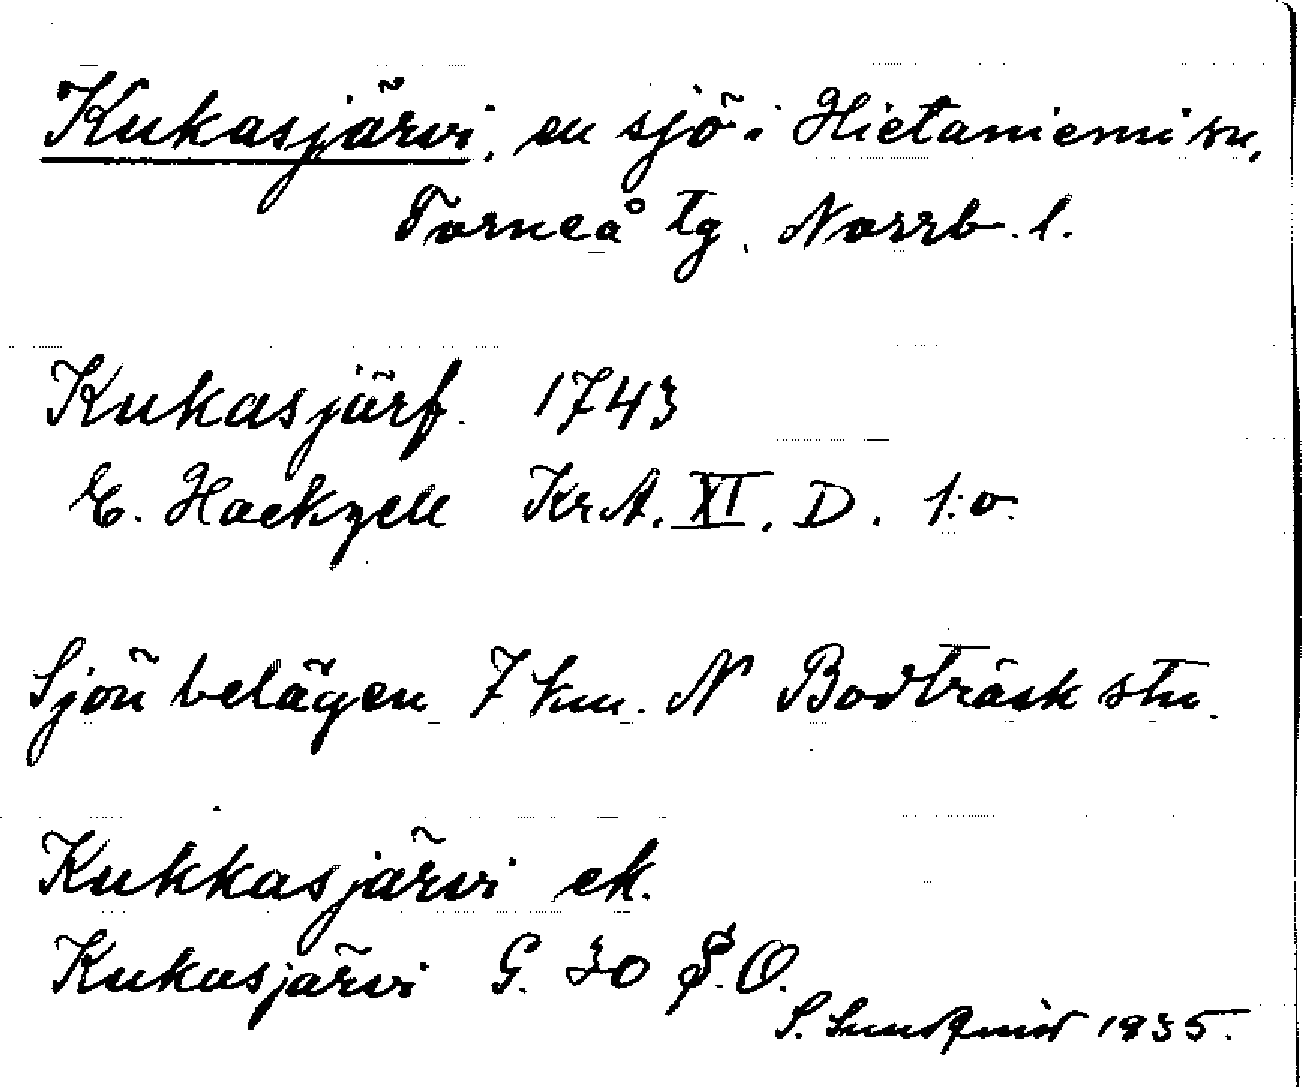 Kukasjärvi, en sjö i Hietaniemi sn,
Torneå tg, Norrb. l.
Kukasjärf. 1743
E. Hackzell KrA. XI. D. 1:o.
Sjön belägen 7 km. N Bodträsk stn.
Kukkasjärvi ek.
Kukasjärvi G. 30 S. O.
S. Sundqvist 1935.